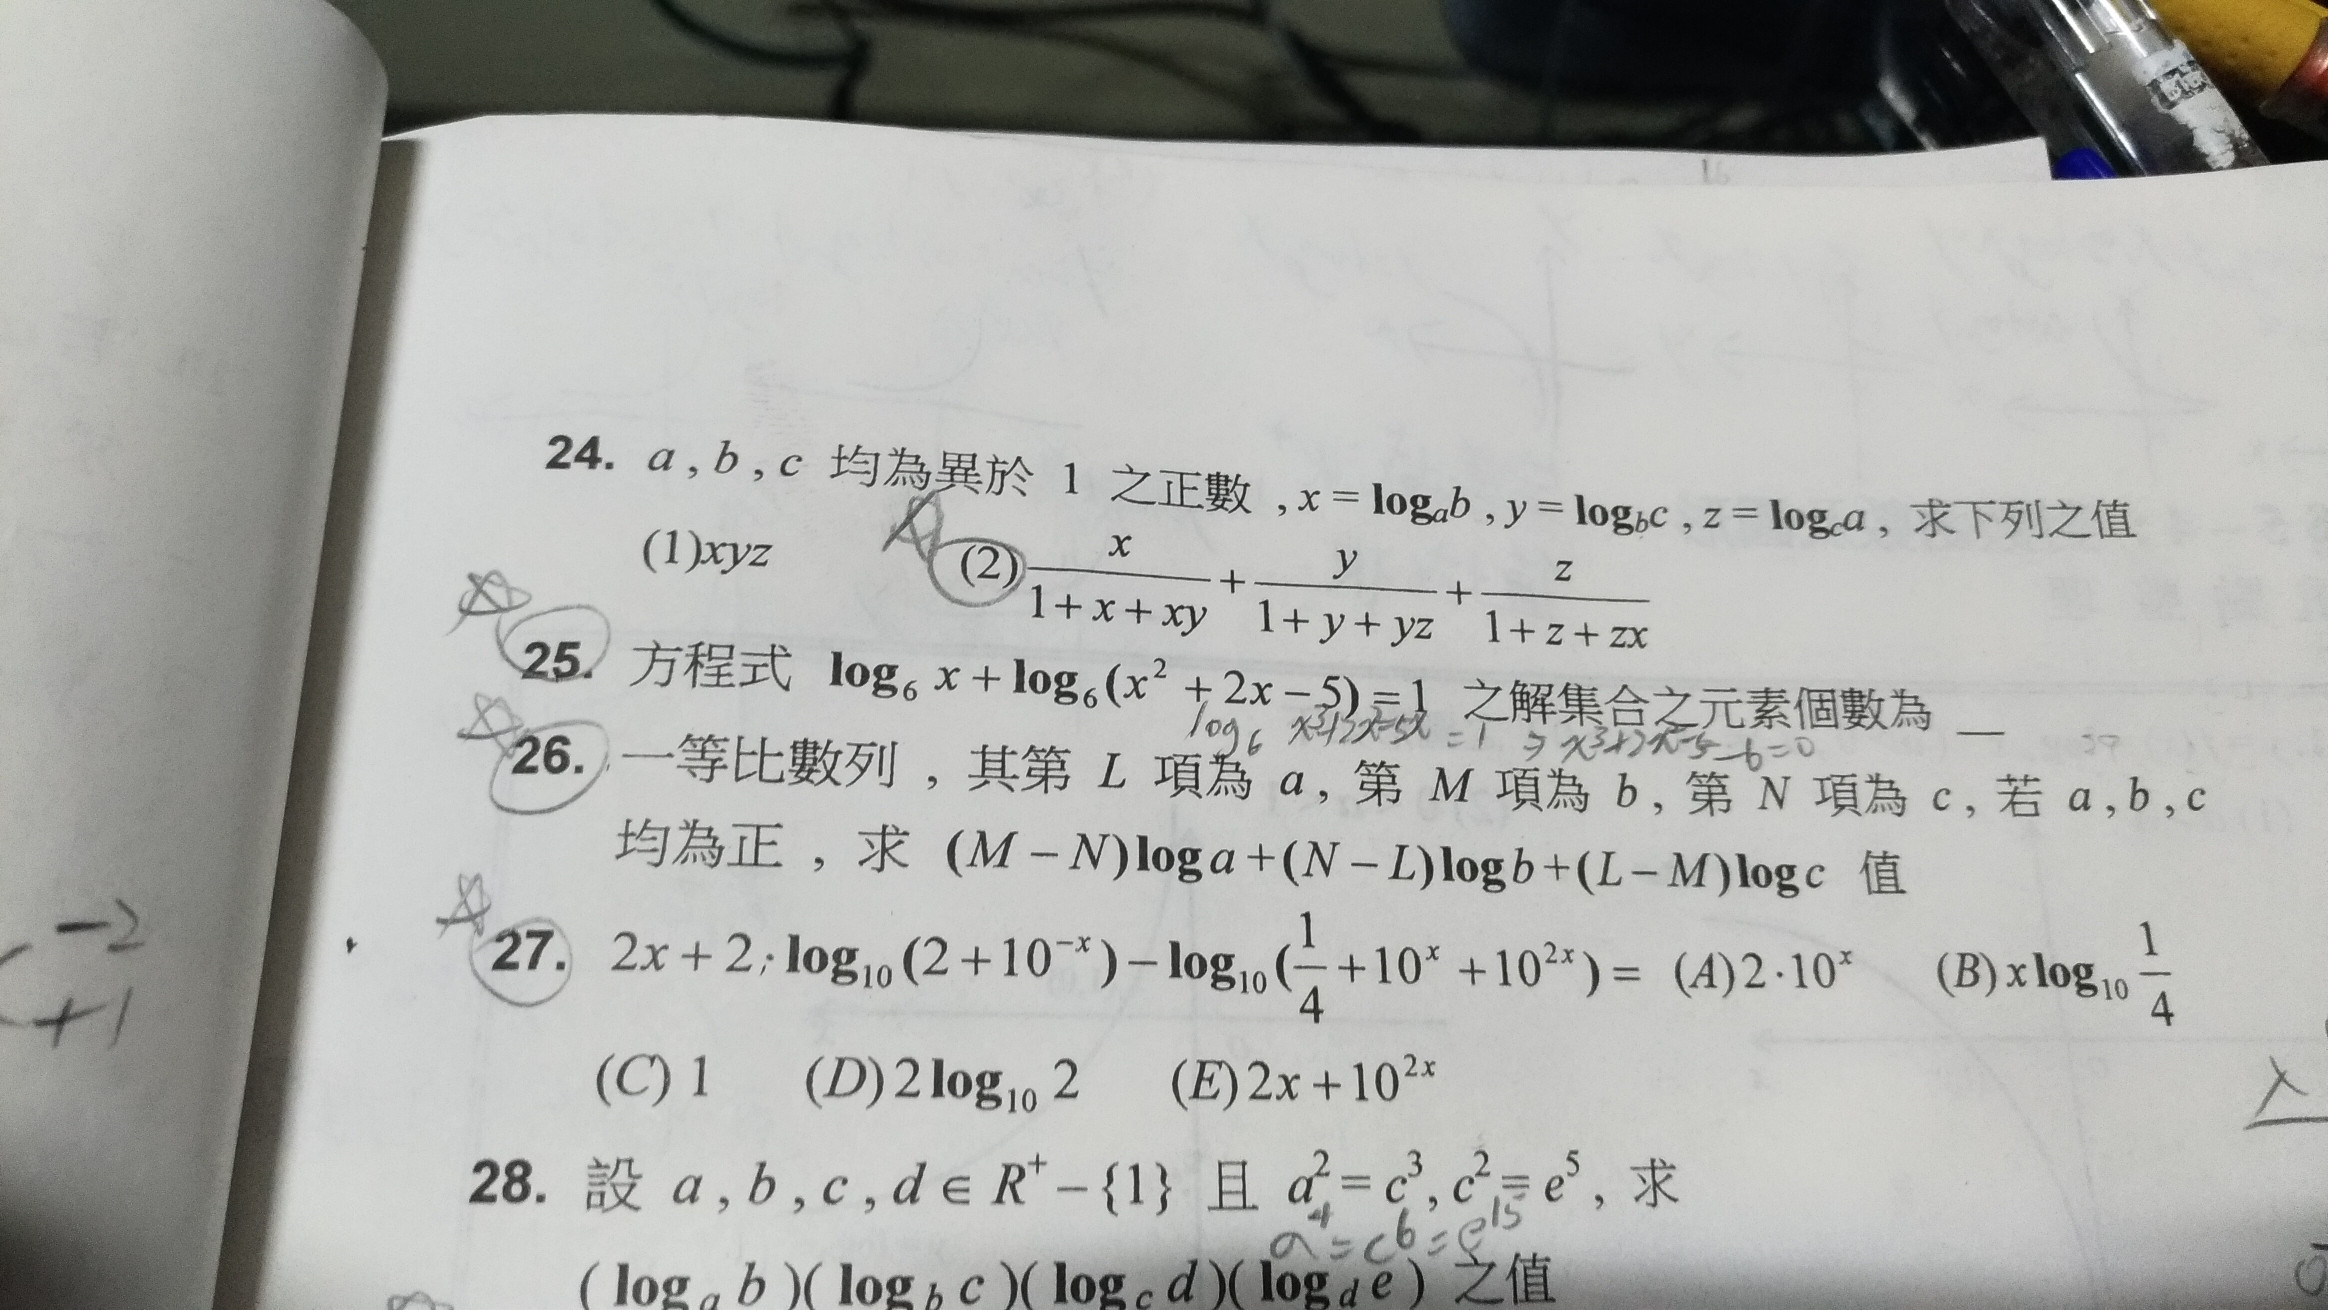 24. a , b , c 均為異於 1 之正數 , x = logₐb , y = log_b c , z = log_c a , 求下列之值
(1)xyz (2) x/(1+x+xy) + y/(1+y+yz) + z/(1+z+zx)
25. 方程式 log₆ x + log₆(x² + 2x − 5) = 1 之解集合之元素個數為 __
log₆ x³+2x²-5x = 1 ⇒ x³+2x²-5 -6=0
26. 一等比數列 , 其第 L 項為 a , 第 M 項為 b , 第 N 項為 c , 若 a , b , c
均為正 , 求 (M − N)log a + (N − L)log b + (L − M)log c 值
27. 2x + 2; log₁₀(2 + 10⁻ˣ) − log₁₀(1/4 + 10ˣ + 10²ˣ) = (A) 2·10ˣ (B) x log₁₀ 1/4
(C) 1 (D) 2 log₁₀ 2 (E) 2x + 10²ˣ
28. 設 a , b , c , d ∈ R⁺ − {1} 且 a² = c³ , c² = e⁵ , 求
a⁴ = c⁶ = e¹⁵
( logₐ b )( log_b c )( log_c d )( log_d e ) 之值
-2
+1